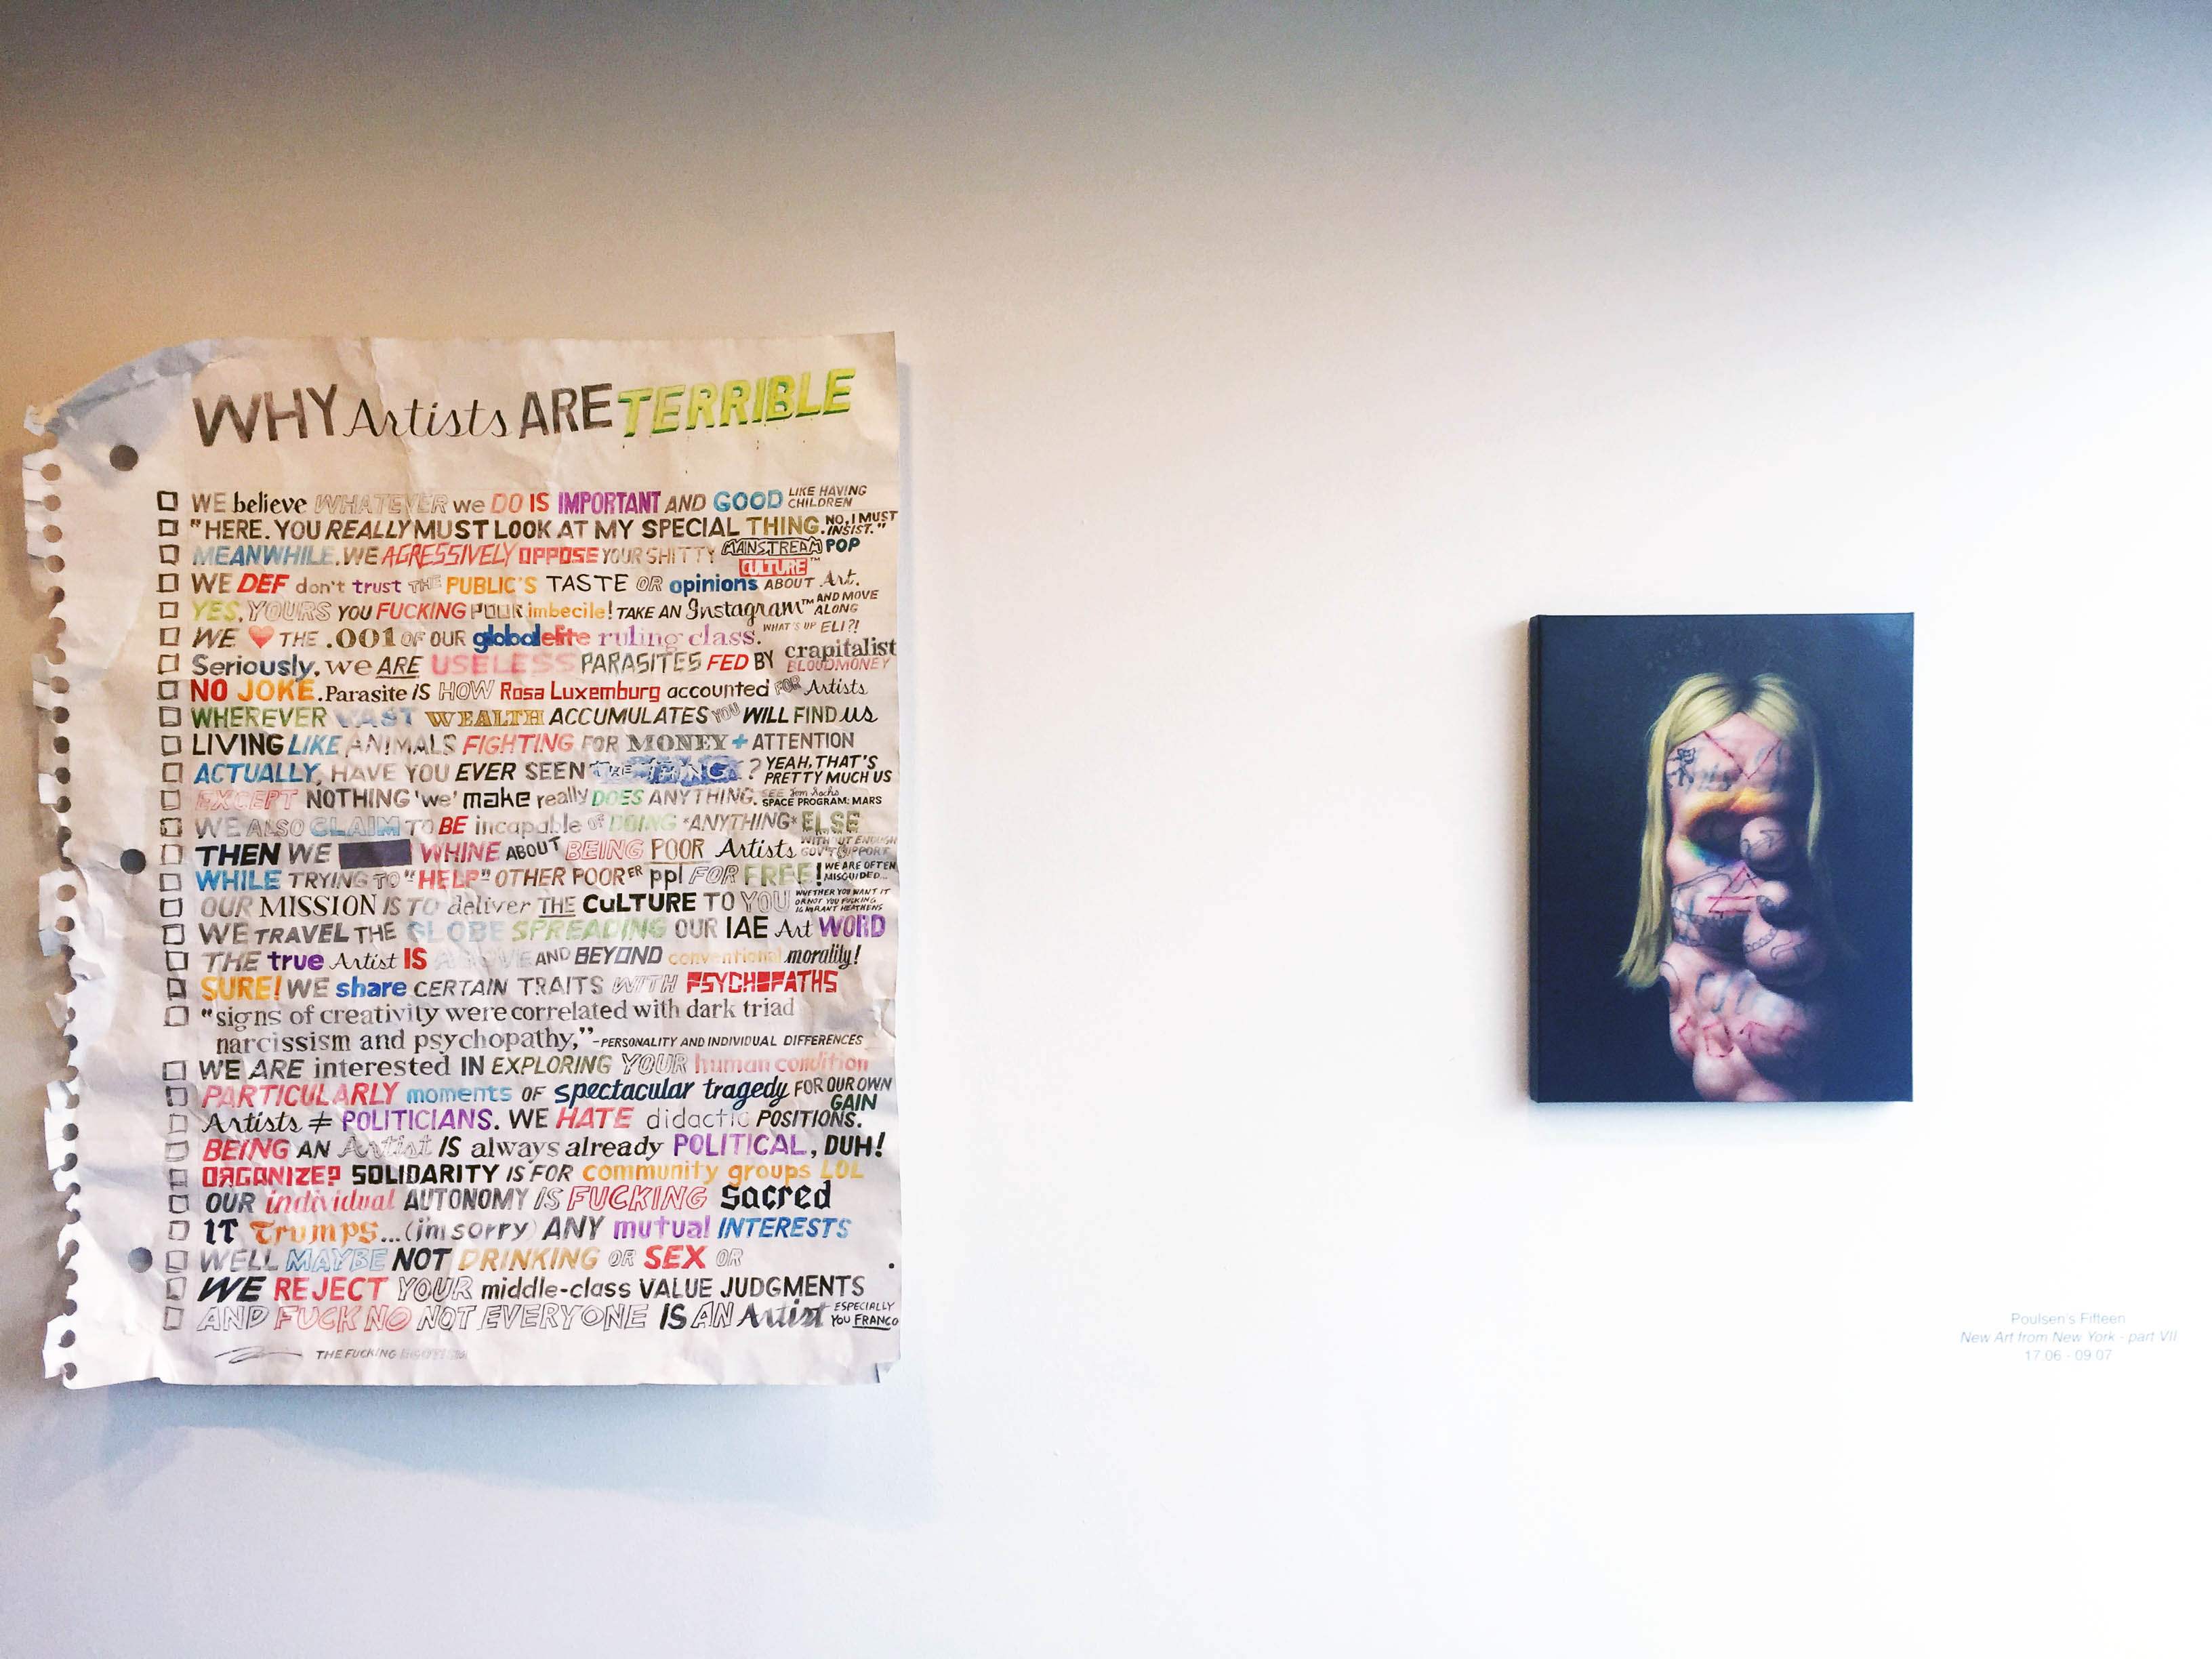 WHY Artists ARE TERRIBLE
WE believe WHATEVER we DO IS IMPORTANT AND GOOD LIKE HAVING CHILDREN
"HERE. YOU REALLY MUST LOOK AT MY SPECIAL THING. NO, I MUST INSIST."
MEANWHILE. WE AGRESSIVELY OPPOSE YOUR SHITTY MAINSTREAM POP CULTURE™
WE DEF don't trust THE PUBLIC'S TASTE OR opinions ABOUT Art.
YES, YOURS YOU FUCKING POOR imbecile! TAKE AN Instagram™ AND MOVE ALONG
WE ♥ THE .001 OF OUR global elite ruling class. WHAT'S UP ELI?!
Seriously, we ARE USELESS PARASITES FED BY crapitalist BLOODMONEY
NO JOKE. Parasite IS HOW Rosa Luxemburg accounted FOR Artists
WHEREVER VAST WEALTH ACCUMULATES YOU WILL FIND us
LIVING LIKE ANIMALS FIGHTING FOR MONEY + ATTENTION
ACTUALLY, HAVE YOU EVER SEEN THE THING? YEAH, THAT'S PRETTY MUCH US
EXCEPT NOTHING 'we' make really DOES ANYTHING. SEE Tom Sachs SPACE PROGRAM: MARS
WE ALSO CLAIM TO BE incapable of DOING *ANYTHING* ELSE
THEN WE WHINE ABOUT BEING POOR Artists WITHOUT ENOUGH GOV'T SUPPORT
WHILE TRYING TO "HELP" OTHER POORER ppl FOR FREE! WE ARE OFTEN MISGUIDED...
OUR MISSION IS TO deliver THE CuLTURE TO YOU WHETHER YOU WANT IT OR NOT YOU FUCKING IGNORANT HEATHENS
WE TRAVEL THE GLOBE SPREADING OUR IAE Art WORD
THE true Artist IS ABOVE AND BEYOND conventional morality!
SURE! WE share CERTAIN TRAITS WITH PSYCHOPATHS
"signs of creativity were correlated with dark triad
narcissism and psychopathy," -PERSONALITY AND INDIVIDUAL DIFFERENCES
WE ARE interested IN EXPLORING YOUR human condition
PARTICULARLY moments OF spectacular tragedy FOR OUR OWN GAIN
Artists ≠ POLITICIANS. WE HATE didactic POSITIONS.
BEING AN Artist IS always already POLITICAL, DUH!
ORGANIZE? SOLIDARITY IS FOR community groups LOL
OUR individual AUTONOMY IS FUCKING Sacred
IT Trumps...(im sorry) ANY mutual INTERESTS
WELL MAYBE NOT DRINKING OR SEX OR .
WE REJECT YOUR middle-class VALUE JUDGMENTS
AND FUCK NO NOT EVERYONE IS AN Artist ESPECIALLY YOU FRANCO
THE FUCKING
Poulsen's Fifteen
New Art from New York - part VII
17.06 - 09.07